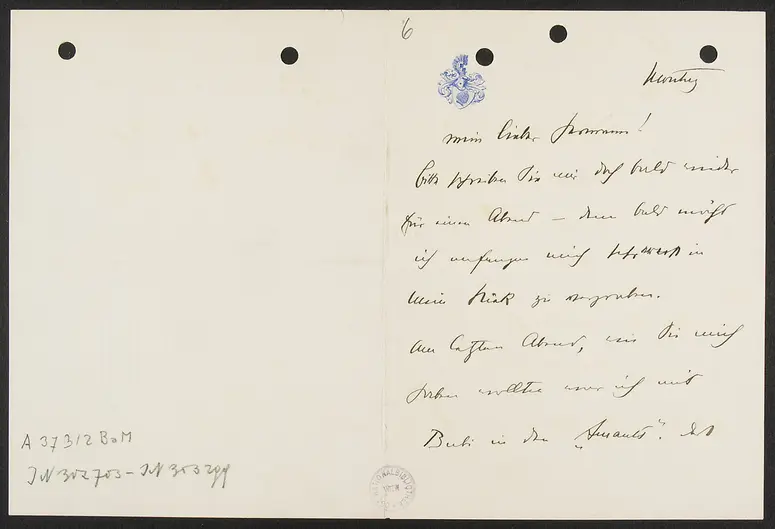 6
Montag
mein lieber Hermann!
bitte schreiben Sie mir doch bald wieder
für einen Abend – denn bald möcht
ich anfangen mich schwer in
mein Stück zu vergraben.
Am letzten Abend, wie Sie mich
haben wollten war ich mit
Bubi in den „Amants". Das
A 37312 BaM
JN 302703 – JN 303299
NATIONALBIBLIOTHEK